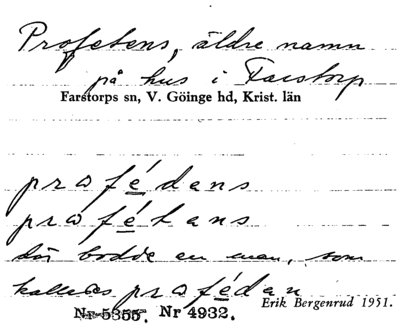 Profetens, äldre namn
på hus i Farstorp
Farstorps sn, V. Göinge hd, Krist. län
prɷfédens
prɷfétens
där bodde en man, som
kallades prɷféden
Erik Bergenrud 1951.
Nr 5355. Nr 4932.